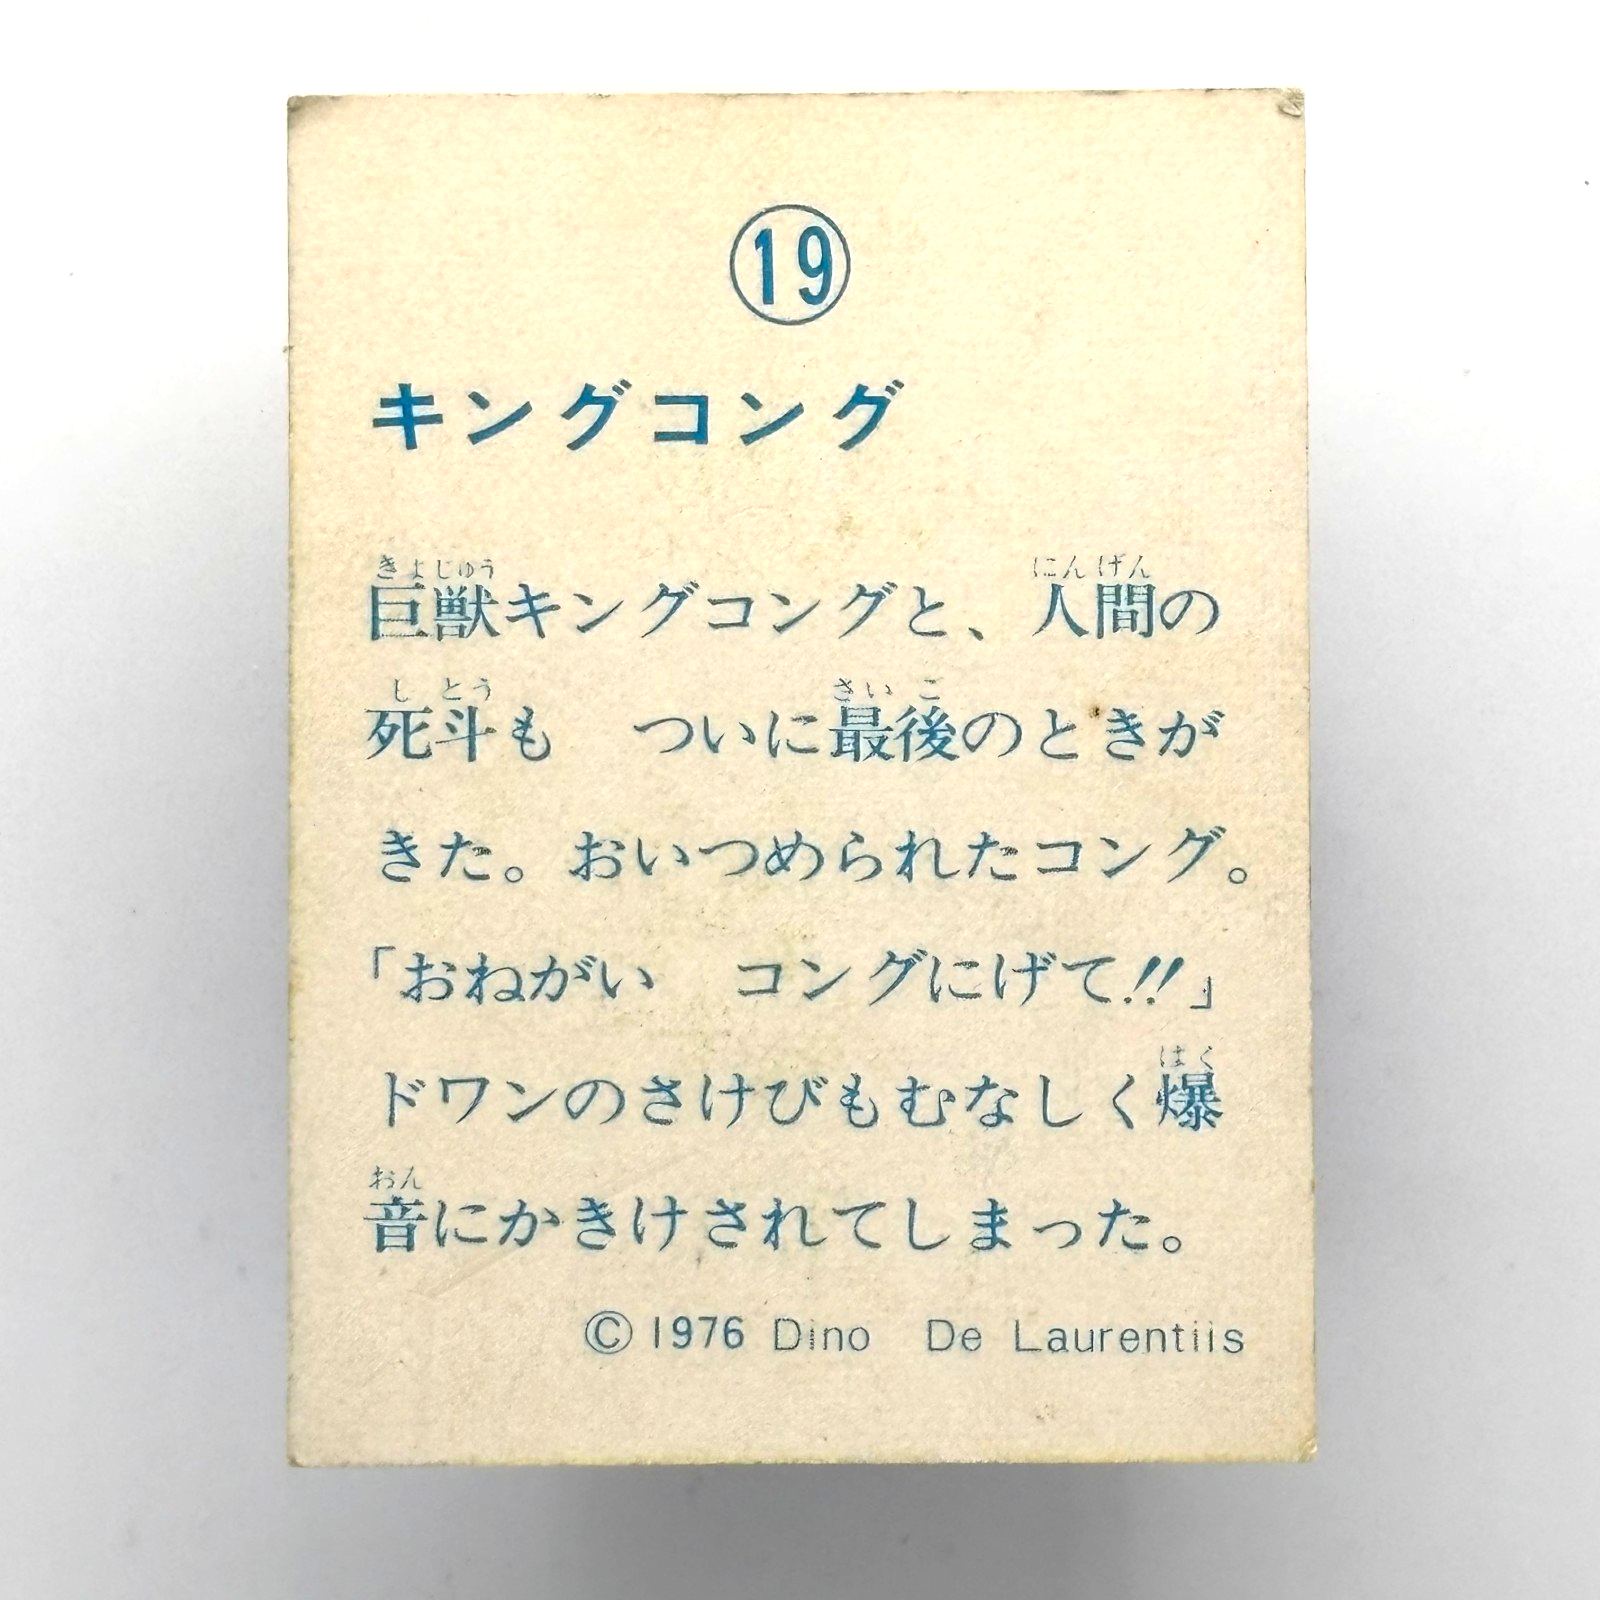 19
キングコング
きょじゅう にんげん
巨獣キングコングと、人間の
しとう さいご
死斗も　ついに最後のときが
きた。おいつめられたコング。
「おねがい　コングにげて!!」
ばく
ドワンのさけびもむなしく爆
おん
音にかきけされてしまった。
© 1976 Dino De Laurentiis